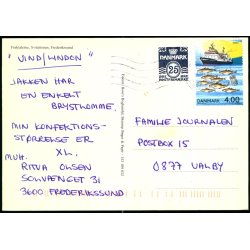 Fredensbro, Svinninge, Frederikssund
"VIND/LINDON"
JAKKEN HAR
EN ENKELT
BRYSTLOMME.
MIN KONFEKTIONS-
STØRRELSE ER
XL.
MVH.
RITVA OLSEN
SOLVÆNGET 31
3600 FREDERIKSSUND
25
DANMARK
DANMARK
4.00
FAMILIE JOURNALEN
POSTBOX 15
0877 VALBY